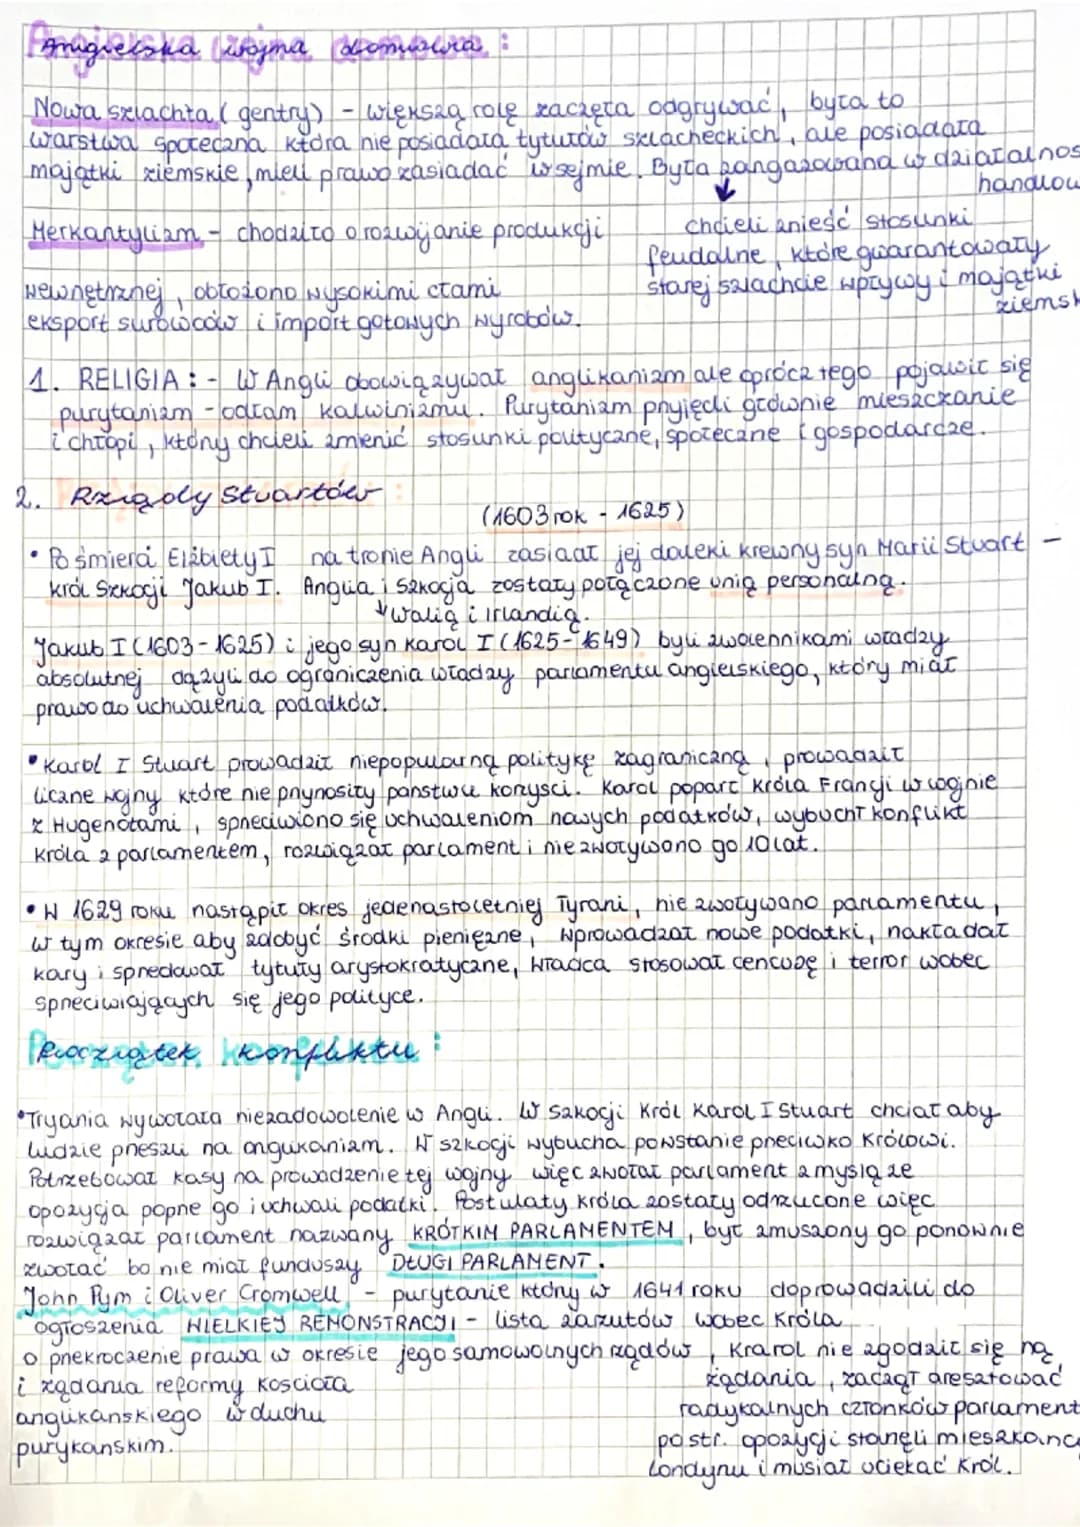 Angielska wojna domowa :
Nowa szlachta ( gentry) - większą rolę zaczęta odgrywać, była to
warstwa społeczna która nie posiadała tytułów szlacheckich, ale posiadała
majątki ziemskie, mieli prawo zasiadać w sejmie. Była zangażowana w działalnoś
handlow
Merkantylizm - chodziło o rozwijanie produkcji
wewnętrznej, obłożono wysokimi cłami
eksport surowców i import gotowych wyrobów.
↓
chcieli znieść stosunki
feudalne, które gwarantowały
starej szlachcie wpływy i majątki
ziemsk
1. RELIGIA : - W Angli obowiązywał anglikanizm ale oprócz tego pojawił się
purytanizm - odłam kalwinizmu. Purytanizm przyjęli głównie mieszczanie
i chłopi, którzy chcieli zmienić stosunki polityczne, społeczne i gospodarcze.
2. Rządy Stuartów :
(1603 rok - 1625)
• Po śmierci Elżbiety I na tronie Angli zasiadł jej daleki krewny syn Marii Stuart -
król Szkocji Jakub I. Anglia i Szkocja zostały połączone unią personalną.
↓ walią i irlandią.
Jakub I (1603-1625) i jego syn Karol I (1625-1649) byli zwolennikami władzy
absolutnej dążyli do ograniczenia władzy parlamentu angielskiego, który miał
prawo do uchwalenia podatków.
• Karol I Stuart prowadził niepopularną politykę zagraniczną, prowadził
liczne wojny które nie przynosiły państwu korzyści. Karol poparł króla Francji w wojnie
z Hugenotami, sprzeciwiono się uchwaleniom nowych podatków, wybuchł konflikt
króla z parlamentem, rozwiązał parlament i nie zwoływono go 10 lat.
• W 1629 roku nastąpił okres jedenastoletniej Tyrani, nie zwoływano parlamentu,
w tym okresie aby zdobyć środki pieniężne, wprowadzał nowe podatki, nakładał
kary i sprzedawał tytuły arystokratyczne, władca stosował cenzurę i terror wobec
sprzeciwiających się jego polityce.
Początek konfliktu :
• Tryania wywołała niezadowolenie w Angli. W Szkocji Król Karol I Stuart chciał aby
ludzie przeszli na anglikanizm. W szkocji wybucha powstanie przeciwko królowi.
Potrzebował kasy na prowadzenie tej wojny więc zwołał parlament z myślą że
opozycja poprze go i uchwali podatki. Postulaty króla zostały odrzucone więc
rozwiązał parlament nazwany KRÓTKIM PARLAMENTEM, był zmuszony go ponownie
zwołać bo nie miał funduszy DŁUGI PARLAMENT.
John Pym i Oliver Cromwell - purytanie którzy w 1641 roku doprowadzili do
ogłoszenia WIELKIEJ REMONSTRACJI - lista zarzutów wobec Króla
o przekroczenie prawa w okresie jego samowolnych rządów,
i żądania reformy kościoła
anglikańskiego w duchu
purykańskim.
Krarol nie zgodził się na
żądania, zaczął aresztować
radykalnych członków parlament
po str. opozycji stanęli mieszkańc
Londynu i musiał uciekać Król.